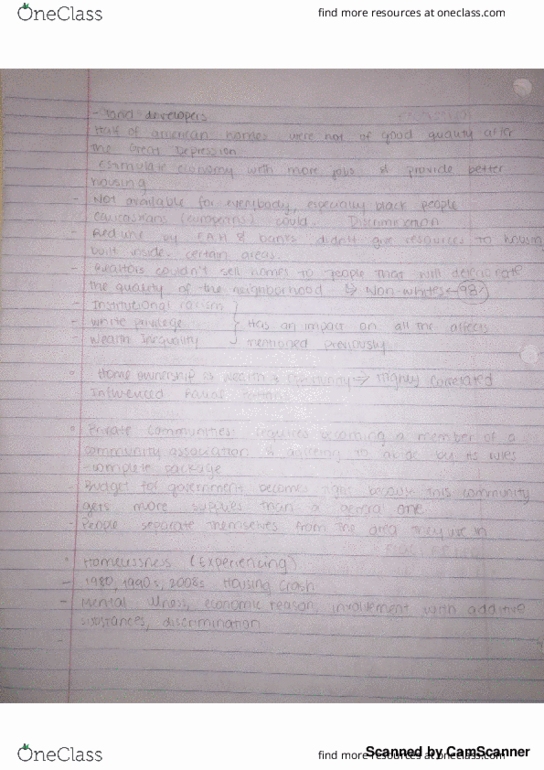 OneClass
find more resources at oneclass.com
- and developers
Half of american homes were not of good quality after
the Great Depression
Stimulate economy with more jobs & provide better
housing
- Not available for everybody, especially black people
caucasians (europeans) could. Discrimination
- Redline by banks didn't give resources to housing
built inside certain areas.
- Realtors couldn't sell homes to people that will
the quality of the neighborhood => Non-whites
- Institutional racism
- White privilege } Has an impact on all the affects
- Wealth Inequality mentioned previously.
Home ownership is wealth => Highly Correlated
Influenced
Private communities requires becoming a member of a
community association & agreeing to abide by its rules
- complete package
- Budget for government becomes this community
gets more supplies than a general one
- People separate themselves from the area they live in
Homelessness (Experiencing)
- 1980, 1990s, 2008s Housing Crash
- Mental illness, economic reason, involvement with addictive
substances, discrimination
OneClass
find more resources at oneclass.com
Scanned by CamScanner